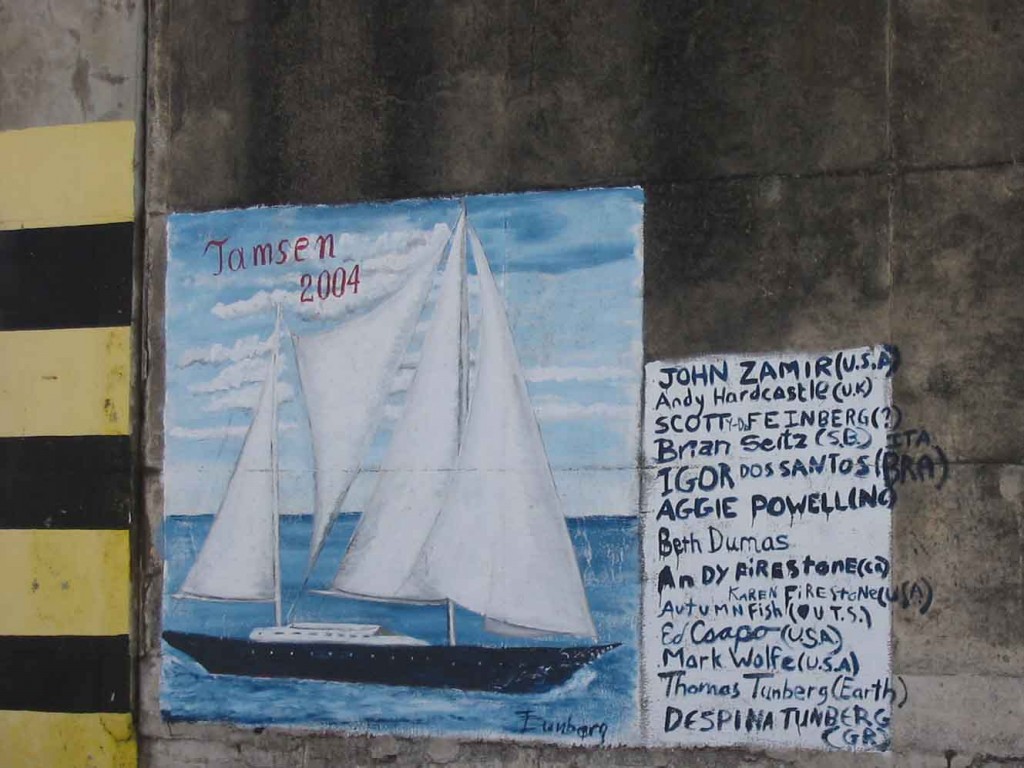 Tamsen
2004
JOHN ZAMIR (U.S.A)
Andy Hardcastle (U.K)
SCOTTY-D FEINBERG (?)
Brian Seitz (S.B.) ITA
IGOR DOS SANTOS (BRA)
AGGIE POWELL (NC)
Beth Dumas
ANDY FIRESTONE (CA)
KAREN FIRESTONE (USA)
AUTUMN Fish (♥ U T.S.)
Ed Csapo (USA)
Mark Wolfe (U.S.A)
Thomas Tunberg (Earth)
DESPINA TUNBERG
(GR)
Tunberg